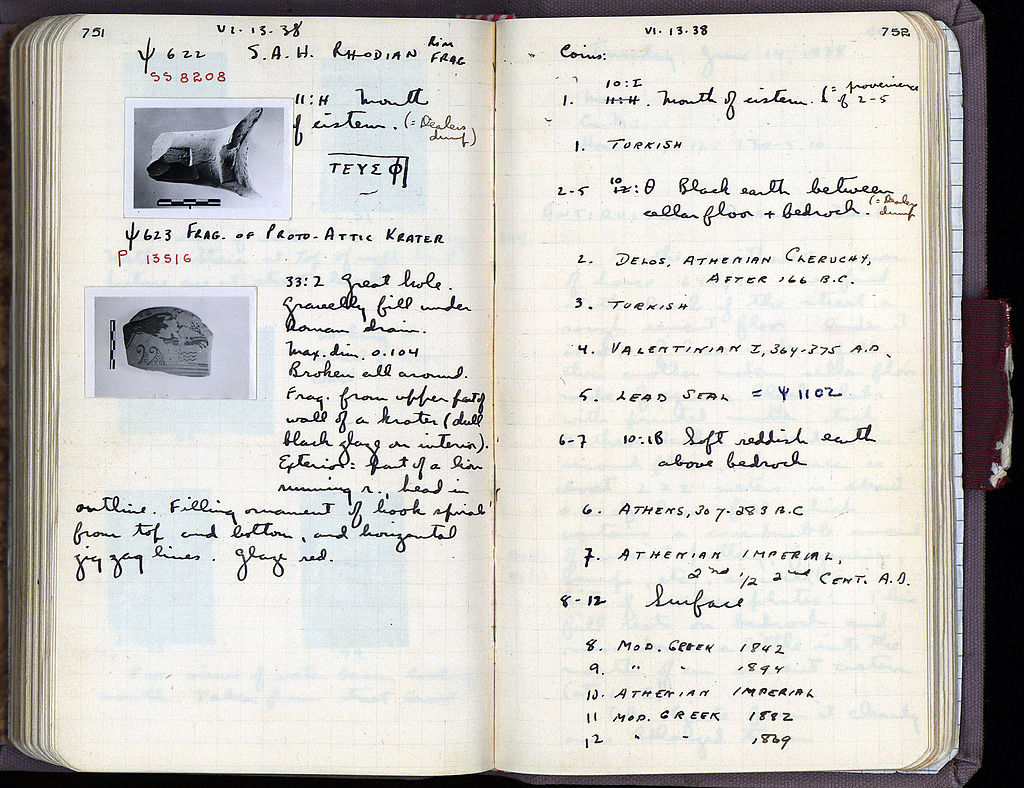 751
VI-13-38
Ψ 622 S.A.H. RHODIAN Rim FRAG
SS 8208
11:H Mouth
of cistern. (= Dealers dump)
ΤΕΥΣΦ
Ψ 623 FRAG. OF PROTO-ATTIC KRATER
P 13516
33:Σ Great hole.
Gravelly fill under
Roman drain.
Max. dim. 0.104
Broken all around.
Frag. from upper part of
wall of a krater (dull
black glaze on interior).
Exterior: part of a lion
running r., head in
outline. Filling ornament of hook spirals
from top and bottom, and horizontal
zig zag lines. Glaze red.
VI-13-38
752
Coins:
10:I
1. H:H. Mouth of cistern. (= provenience of 2-5
1. TURKISH
10
2-5 12:Θ Black earth between
cellar floor + bedrock. (= Dealers dump
2. DELOS, ATHENIAN CLERUCHY,
AFTER 166 B.C.
3. TURKISH
4. VALENTINIAN I, 364-375 A.D.
5. LEAD SEAL = Ψ 1102
6-7 10:ΙΒ Soft reddish earth
above bedrock
6. ATHENS, 307-283 B.C
7. ATHENIAN IMPERIAL,
2nd 1/2 2nd CENT. A.D.
8-12 Surface
8. MOD. GREEK 1842
9. " " 1894
10. ATHENIAN IMPERIAL
11 MOD. GREEK 1882
12 " " 1869